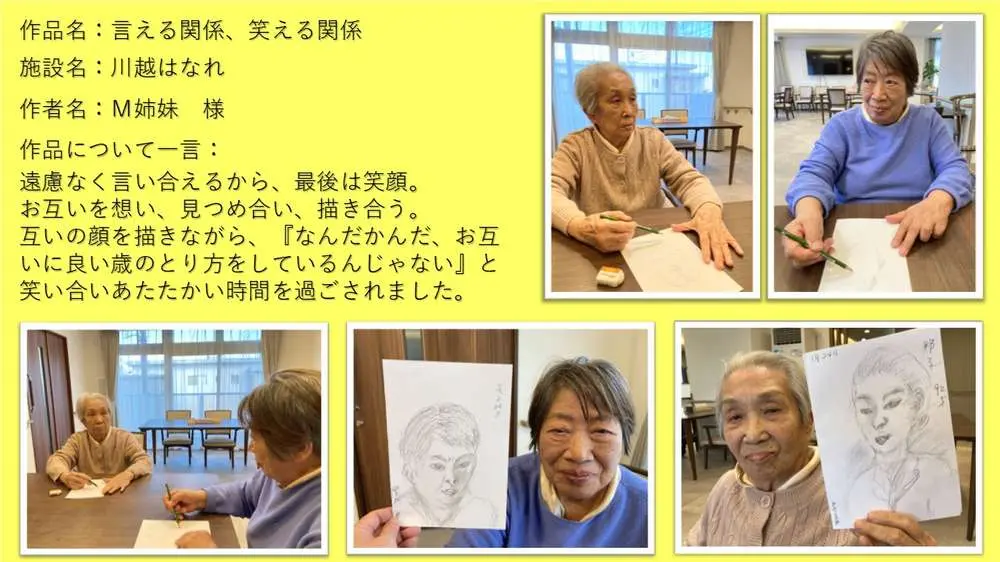 作品名：言える関係、笑える関係
施設名：川越はなれ
作者名：Ｍ姉妹　様
作品について一言：
遠慮なく言い合えるから、最後は笑顔。
お互いを想い、見つめ合い、描き合う。
互いの顔を描きながら、『なんだかんだ、お互
いに良い歳のとり方をしているんじゃない』と
笑い合いあたたかい時間を過ごされました。